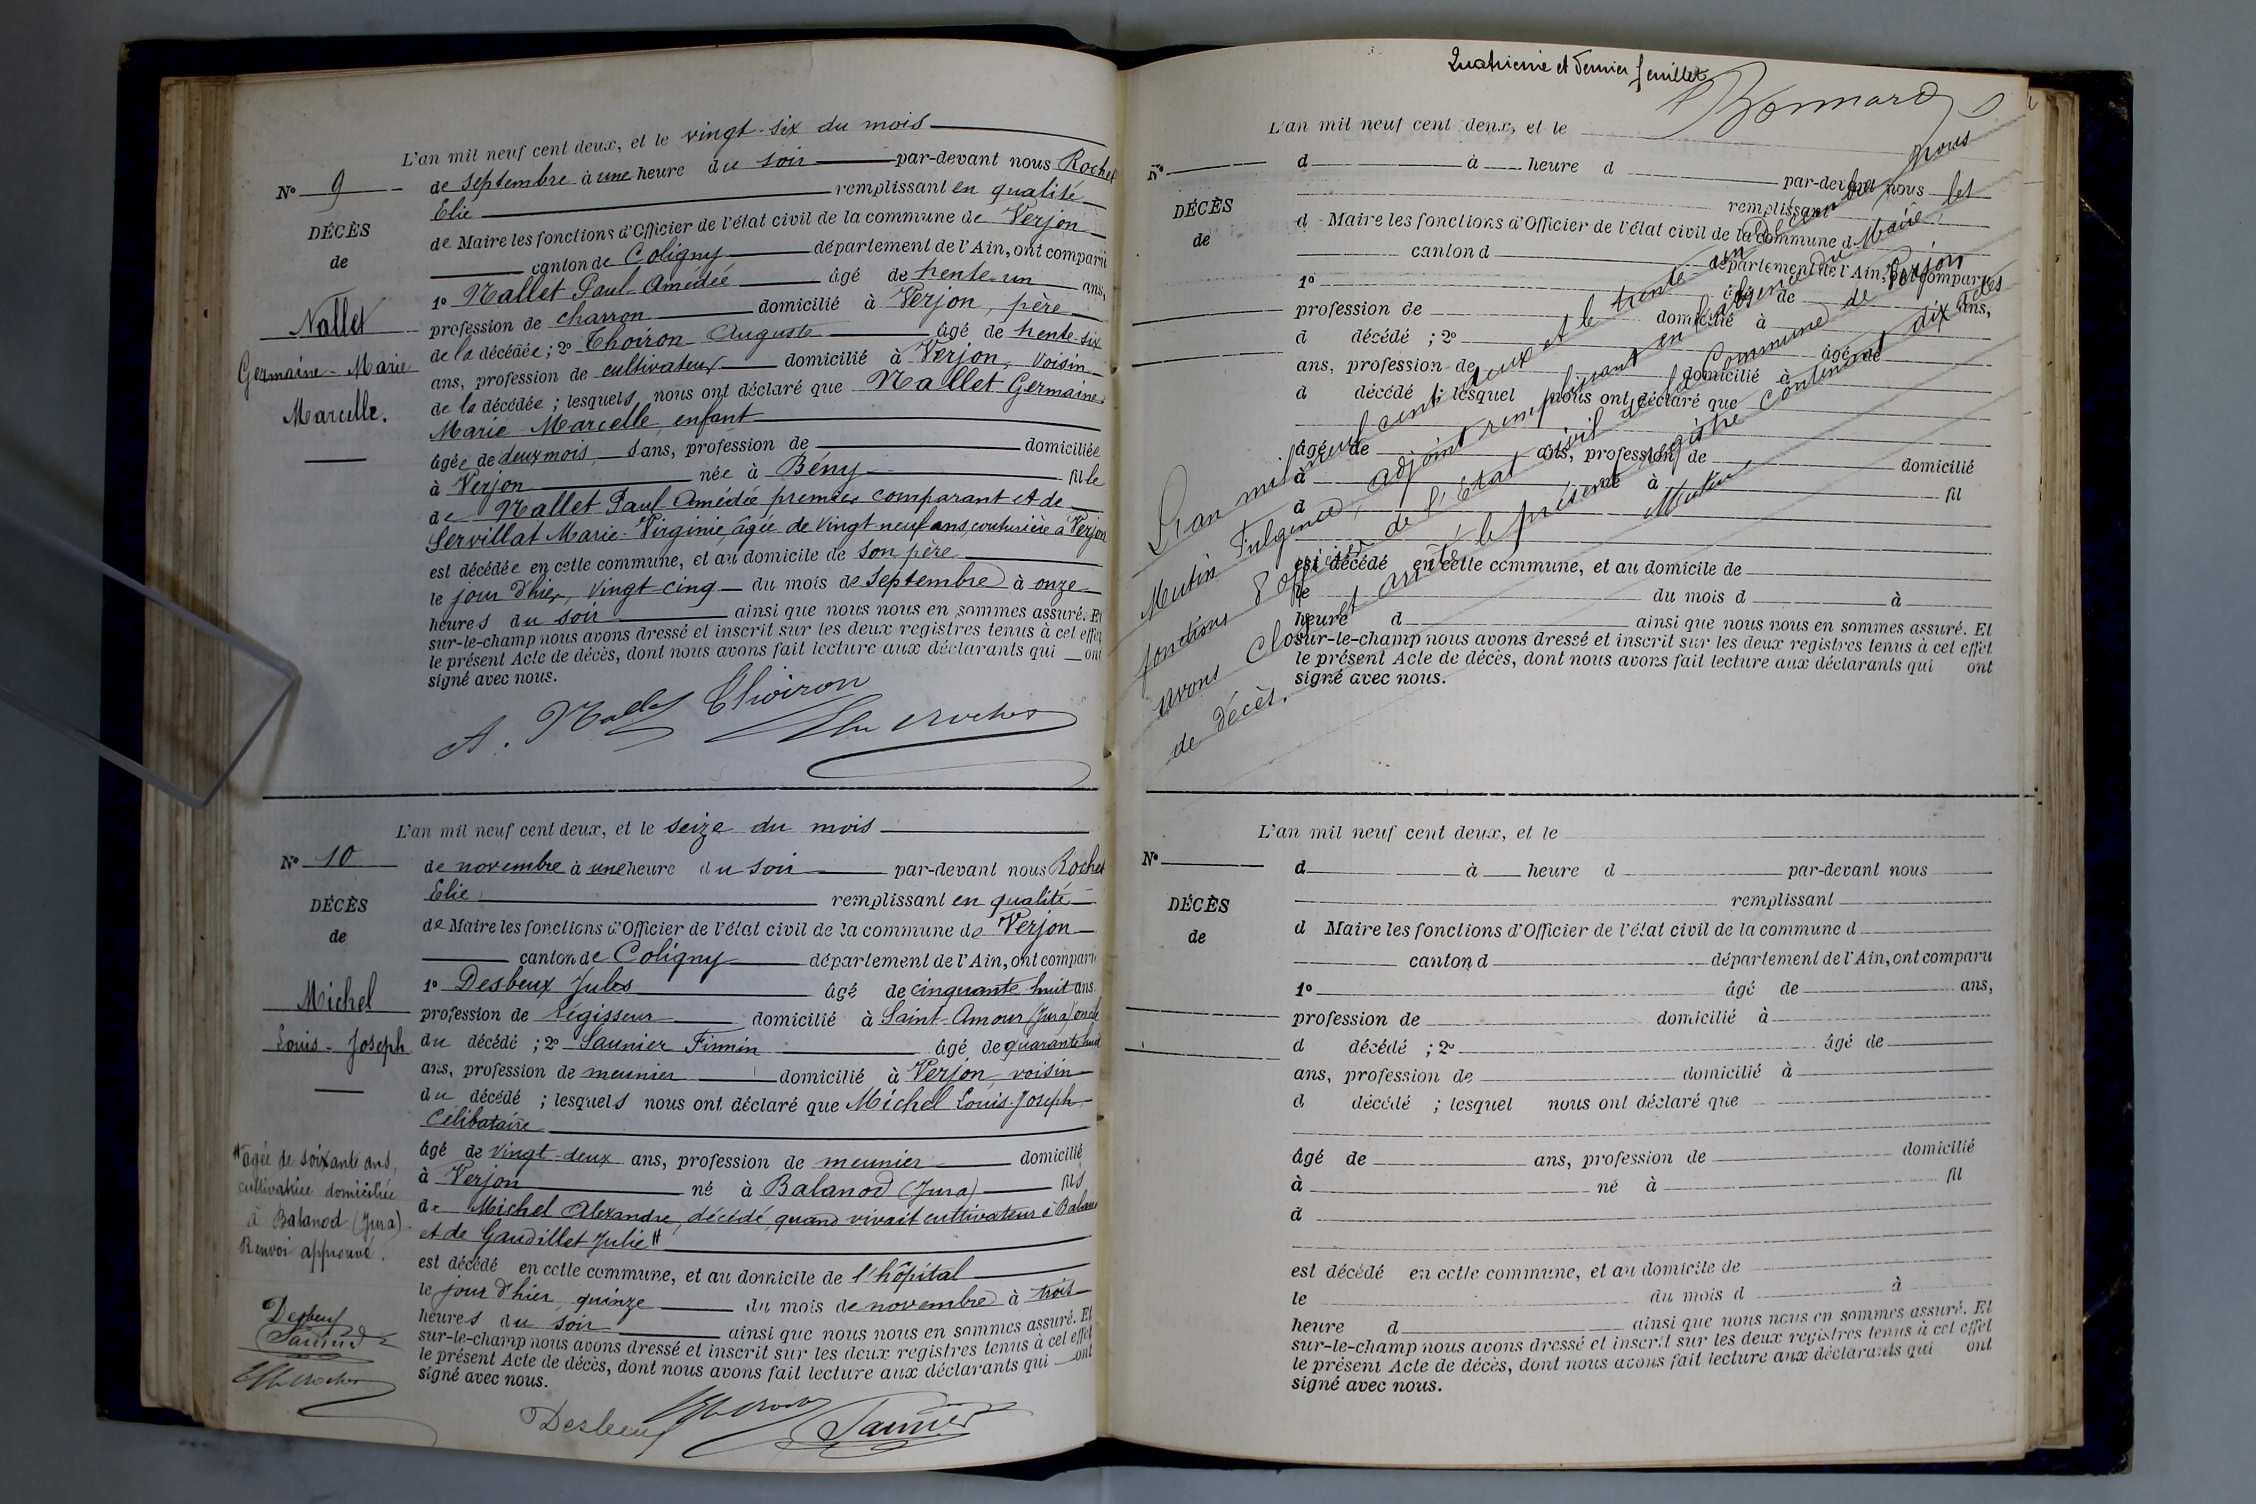 L'an mil neuf cent deux, et le vingt-six du mois
N° 9
de septembre à une heure du soir par-devant nous Rochet
Elie remplissant en qualité
DÉCÈS
de
de Maire les fonctions d'Officier de l'état civil de la commune de Verjon
canton de Coligny département de l'Ain, ont comparu
1° Nallet Paul Amédée âgé de trente-un ans,
Nallet
Germaine-Marie
Marcelle.
profession de charron domicilié à Verjon, père
de la décédée ; 2° Thoiron Auguste âgé de trente-six
ans, profession de cultivateur domicilié à Verjon, voisin
de la décédée ; lesquels nous ont déclaré que Nallet Germaine
Marie Marcelle, enfant
âgée de deux mois, sans, profession de domiciliée
à Verjon née à Bény fille
de Nallet Paul Amédée premier comparant et de
Servillat Marie-Virginie, âgée de vingt neuf ans, couturière à Verjon
est décédée en cette commune, et au domicile de son père
le jour d'hier, vingt cinq du mois de septembre à onze
heures du soir ainsi que nous nous en sommes assuré. Et
sur-le-champ nous avons dressé et inscrit sur les deux registres tenus à cet effet
le présent Acte de décès, dont nous avons fait lecture aux déclarants qui ont
signé avec nous.
A. Nallet Thoiron
Elie Rochet
L'an mil neuf cent deux, et le seize du mois
N° 10
de novembre à une heure du soir par-devant nous Rochet
Elie remplissant en qualité
DÉCÈS
de
de Maire les fonctions d'Officier de l'état civil de la commune de Verjon
canton de Coligny département de l'Ain, ont comparu
Michel
Louis-Joseph
1° Desbeux Jules âgé de cinquante huit ans
profession de régisseur domicilié à Saint-Amour (Jura) oncle
du décédé ; 2° Saunier Firmin âgé de quarante huit
ans, profession de meunier domicilié à Verjon, voisin
du décédé ; lesquels nous ont déclaré que Michel Louis-Joseph
Célibataire
âgé de vingt-deux ans, profession de meunier domicilié
à Verjon né à Balanod (Jura) fils
de Michel Alexandre, décédé, quand vivait cultivateur à Balanod
et de Gaudillet Julie #
est décédé en cette commune, et au domicile de l'hôpital
le jour d'hier, quinze du mois de novembre à trois
heures du soir ainsi que nous nous en sommes assuré. Et
sur-le-champ nous avons dressé et inscrit sur les deux registres tenus à cet effet
le présent Acte de décès, dont nous avons fait lecture aux déclarants qui ont
signé avec nous.
# agée de soixante ans,
cultivatrice domiciliée
à Balanod (Jura).
Renvoi approuvé.
Desbeux
Saunier
Elie Rochet
Desbeux Elie Rochet Saunier
Quatrième et dernier feuillet
Bonnard
L'an mil neuf cent deux, et le
N°
d à heure d par-devant nous
remplissant
DÉCÈS
de
d Maire les fonctions d'Officier de l'état civil de la commune d
canton d département de l'Ain, ont comparu
1° âgé de ans,
profession de domicilié à
d décédé ; 2° âgé de
ans, profession de domicilié à
d décédé ; lesquel nous ont déclaré que
âgé de ans, profession de domicilié
à né à fil
d
est décédé en cette commune, et au domicile de
le du mois d à
heure d ainsi que nous nous en sommes assuré. Et
sur-le-champ nous avons dressé et inscrit sur les deux registres tenus à cet effet
le présent Acte de décès, dont nous avons fait lecture aux déclarants qui ont
signé avec nous.
L'an mil neuf cent deux et le trente-un décembre, nous
Mutin Fulgence, adjoint remplissant en l'absence du Maire, les
fonctions d'officier de l'état civil de la commune de Verjon
avons clos et arrêté le présent registre contenant dix actes
de décès.
Mutin
L'an mil neuf cent deux, et le
N°
d à heure d par-devant nous
remplissant
DÉCÈS
de
d Maire les fonctions d'Officier de l'état civil de la commune d
canton d département de l'Ain, ont comparu
1° âgé de ans,
profession de domicilié à
d décédé ; 2° âgé de
ans, profession de domicilié à
d décédé ; lesquel nous ont déclaré que
âgé de ans, profession de domicilié
à né à fil
d
est décédé en cette commune, et au domicile de
le du mois d à
heure d ainsi que nous nous en sommes assuré. Et
sur-le-champ nous avons dressé et inscrit sur les deux registres tenus à cet effet
le présent Acte de décès, dont nous avons fait lecture aux déclarants qui ont
signé avec nous.